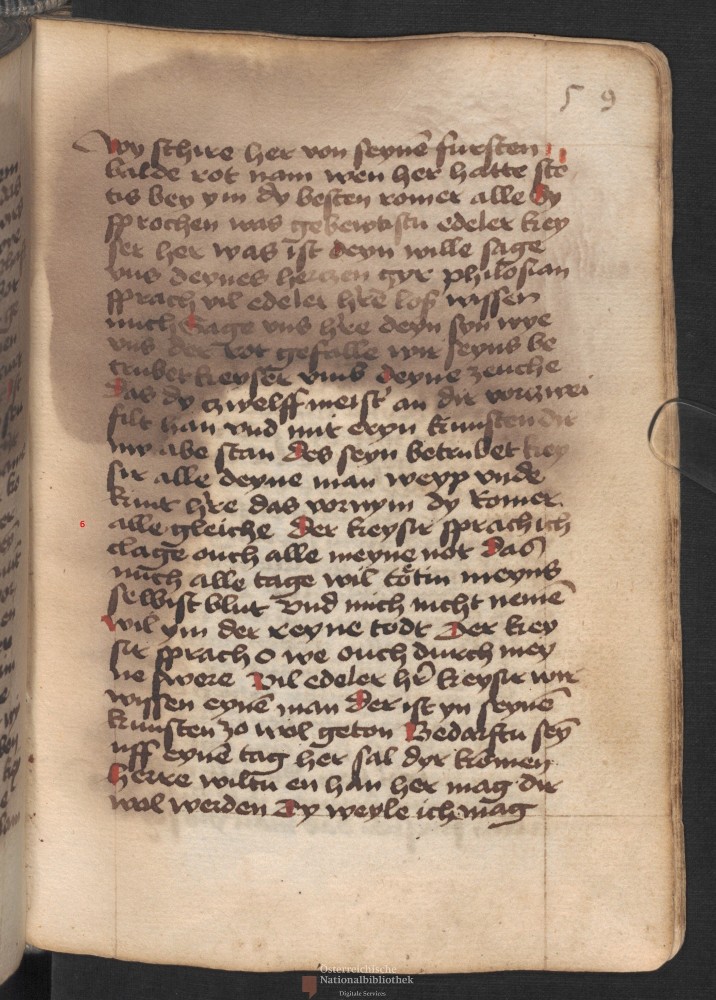 59
Wy schire her von seynē fursten
balde rot nam wen her hatte ste
tis bey ym dy besten romer alle Dy
sprochen was gebewtstu edeler key
ser her was ist deyn wille sage
vns deynes herczen gyr philosian
sprach vil edeler hr̄e los wissen
mich Sage vns hr̄e deyn syn wye
vns der rot gefalle wir seyns be
trubet keyser vmb deyne zeuche
Das dy czwelff meist' an dir vorczwei
felt han vnd mit eryn kunsten dir
nw abe stan Des seyn betrubet key
sir alle deyne man weyp vnde
kint hr̄e das vornym dy Romer
alle gleiche Der keysir sprach ich
clage ouch alle meyne not Das
mich alle tage wil tötin meyns
selbist blut Vnd mich nicht nemē
wil ym der reyne todt Der key
sir sprach O we ouch durch mey
ne swere Vil edeler hr̄ keysir wir
wissen eynē man Der ist yn seynē
kunsten zo wol geton Bedarfstu seȳ
uff eynē tag her sal dyr komen
herre wiltu en han her mag dir
wol werden Dy weyle ich mag
6
Österreichische
Nationalbibliothek
Digitale Services